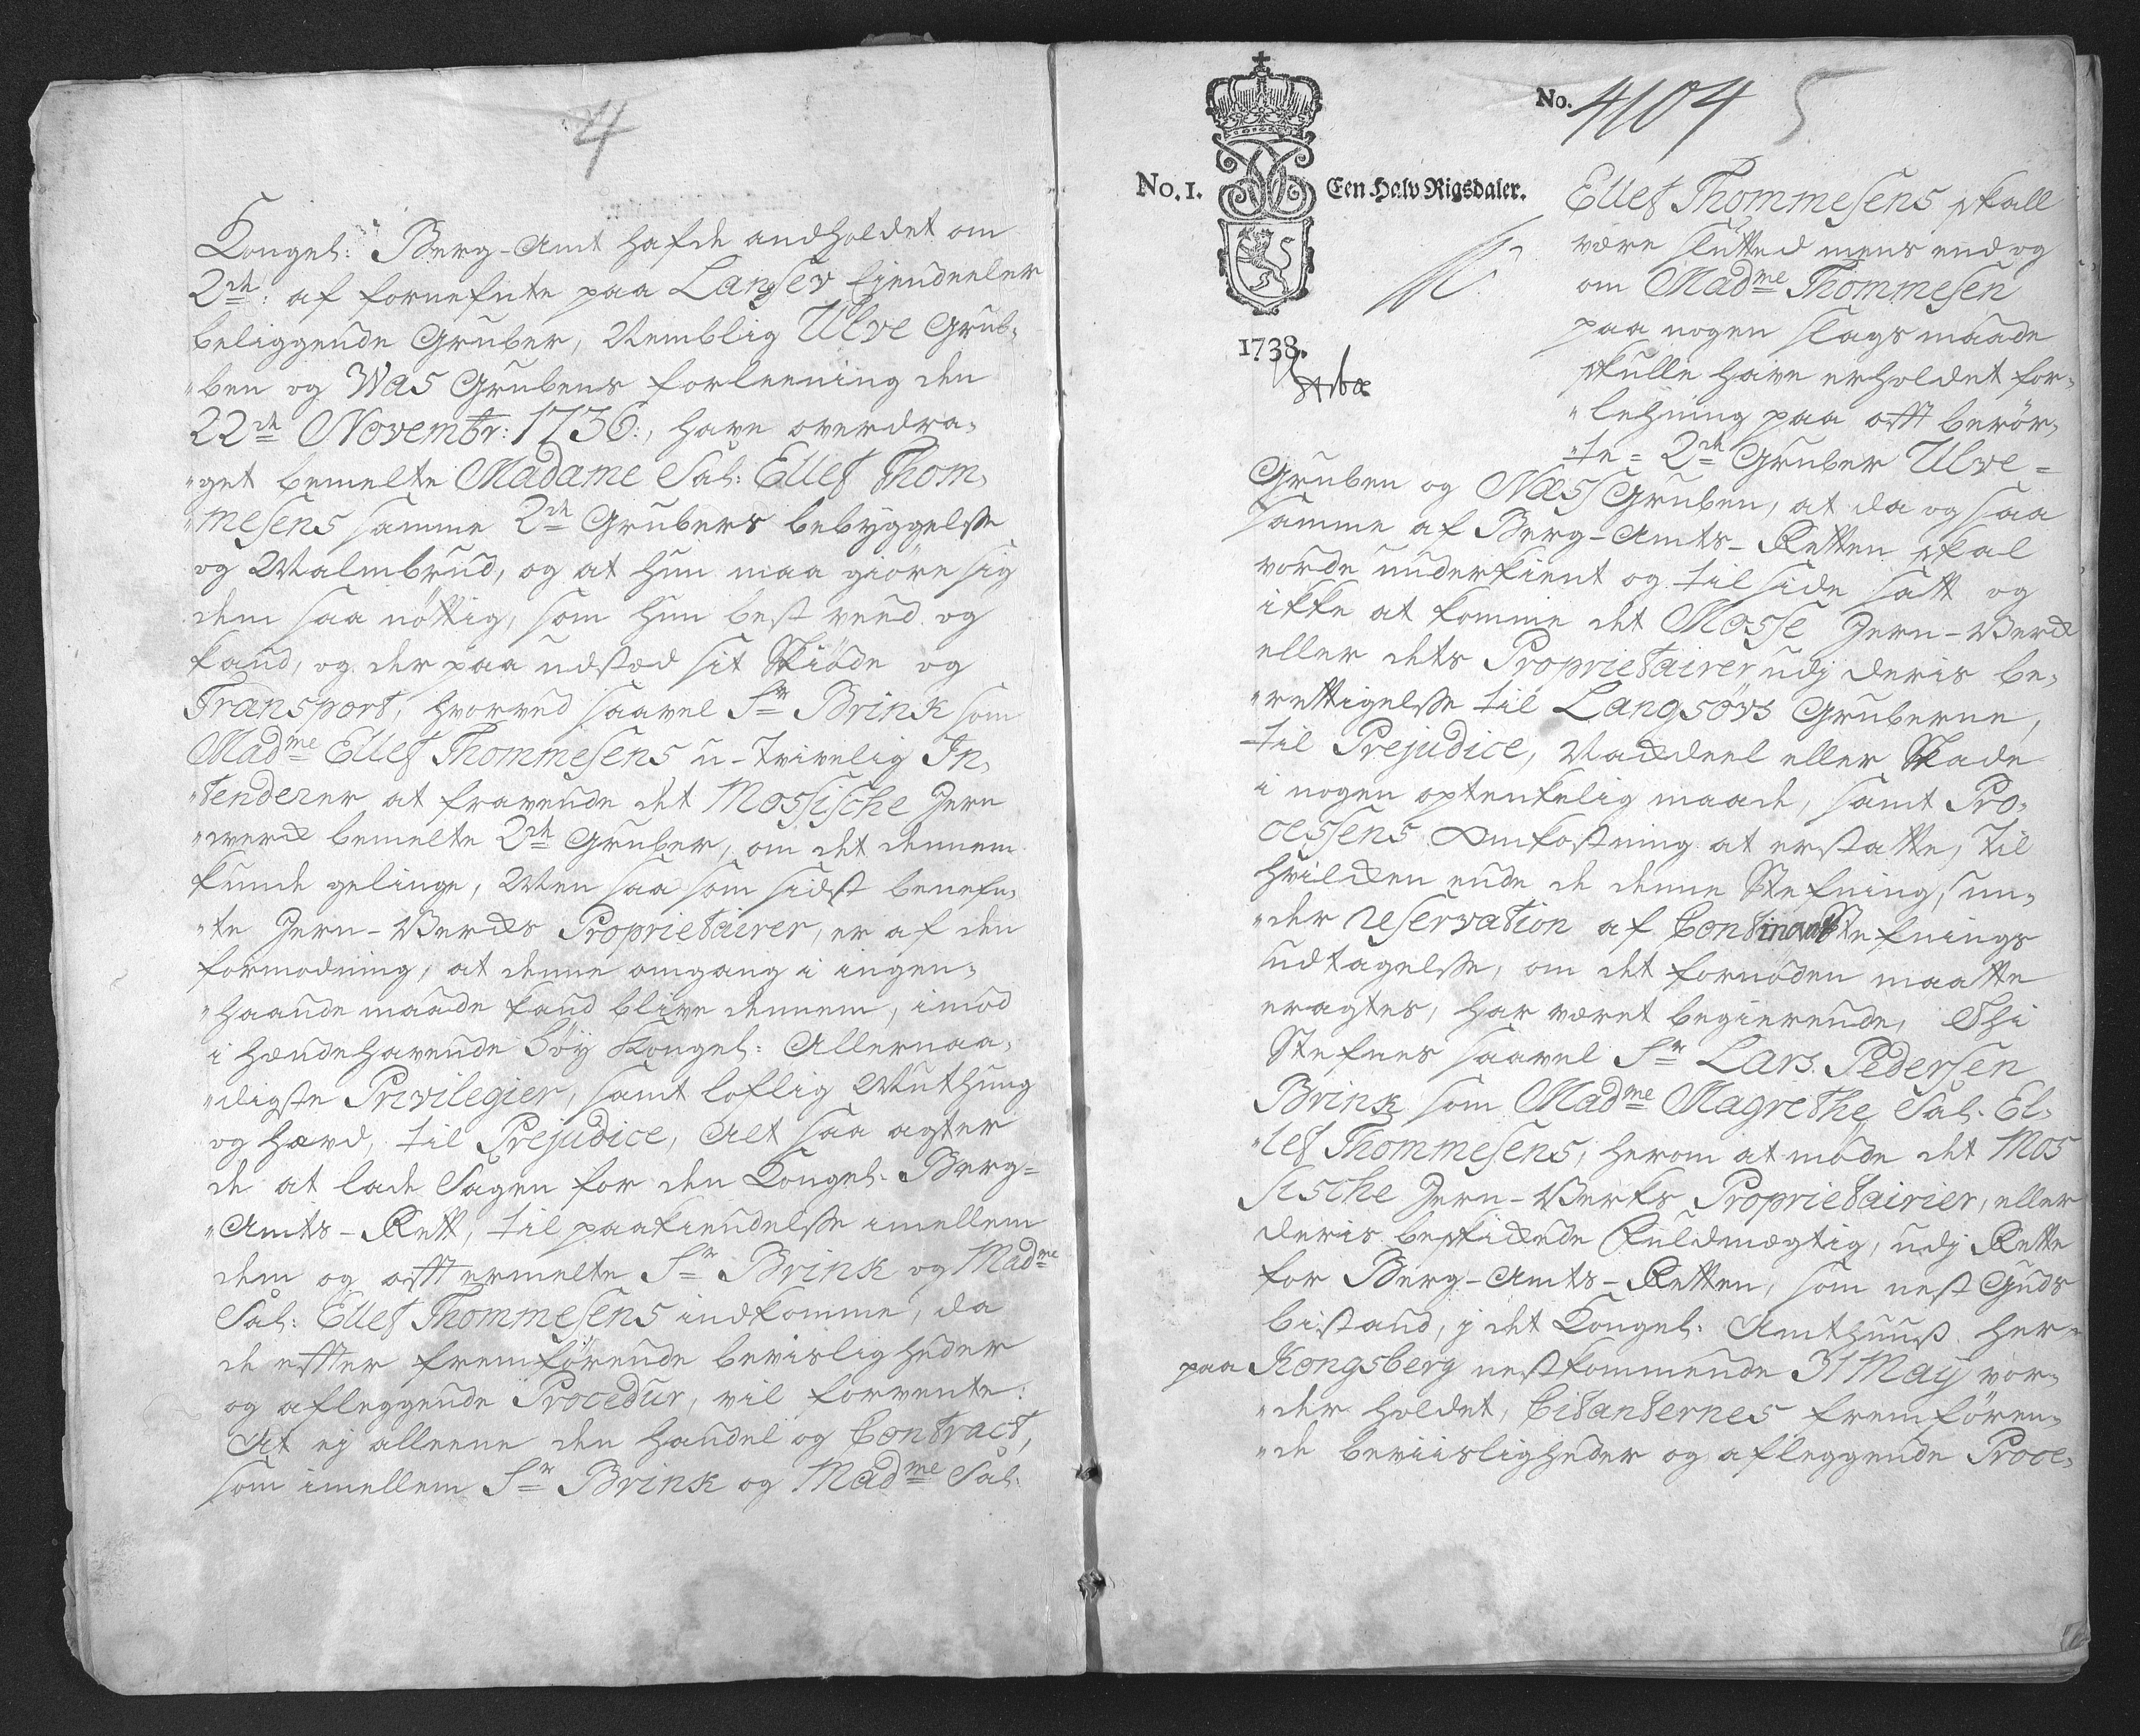 4
Kongel: Berg-Amt hafde andholdet om
2de: af fornefnte paa Langsev Eiendeeler
beliggende Gruber, Nemblig Ulve Grub-
ben og Was Grubens forleening den
22de Novembr: 1736:, have overdra-
get bemelte Madame Sal: Ellef Thom-
mesens samme 2de Grubers bebyggelse
og Malmbrud, og at hun maa giøre sig
dem saa nøttig, som hun best veed og
kand, og der paa udstæd sit Skiøde og
Transport, hvorved saavel Sr Brink som
Madme Ellef Thommesens u-tvivelig In-
tenderer at fravende det Mossische Jern
werck bemelte 2de Gruber, om det dennem
kunde gelinge, Men saa som sidst benefn-
te Jern-Vercks Proprietairer, er af den
formodning, at denne omgang i ingen-
haande maade kand blive dennem, imod
i hændehavende høy Kongel: Allernaa-
digste Privilegier, samt loflig Muthung
og hævd, til Prejudice, Alt saa agter
de at lade Sagen for den Kongel: Berg-
Amts-Rett, til paakiendelse imellem
dem og offtermelte Sr Brink og Madme
Sal: Ellef Thommesens indkomme, da
de efter fremførende bevisligheder
og afleggende Procedur, vil forvente:
At ej alleene den handel og Contract,
som imellem Sr Brink og Madme Sal:
No. 4104 5
No. 1. Een Halv Rigsdaler.
1738.
Ellef Thommesens skall
være slutted mens end og
om Madme Thommesen
paa nogen slags maade
skulle have erholdet for-
lehning paa offt berør-
te 2de Gruber Ulve-
Gruben og Næss Gruben, at da og saa
samme af Berg-Amts-Retten skal
vorde underkient og til side satt og
ikke at komme det Mosse Jern-Verck
eller dets Proprietairer udj deris be-
rettigelse til Langsövs Gruberne,
til Prejudice, Nackdeel eller Skade
i nogen optenkelig maade, samt Pro-
cessens Omkostning at erstatte, Til
hvilcken ende de denne Stefning, un-
der reservation af Continuat Stefnings
udtagelse, om det fornøden maatte
eragtes, har været begierende, Thi
Stefnes saavel Sr Lars Pedersen
Brink som Madme Magrethe Sal. El-
lef Thommesens, herom at møde det Mos
sische Jern-Verks Proprietairier, eller
deris beskickede Fuldmægtig, udj Rette
for Berg-Amts-Retten, som nest Guds
bistand, j det Kongel: Amthuus her
paa Kongsberg nestkommende 31 May vor-
der holdet, Citanternes fremføren-
de beviisligheder og afleggende Proce-